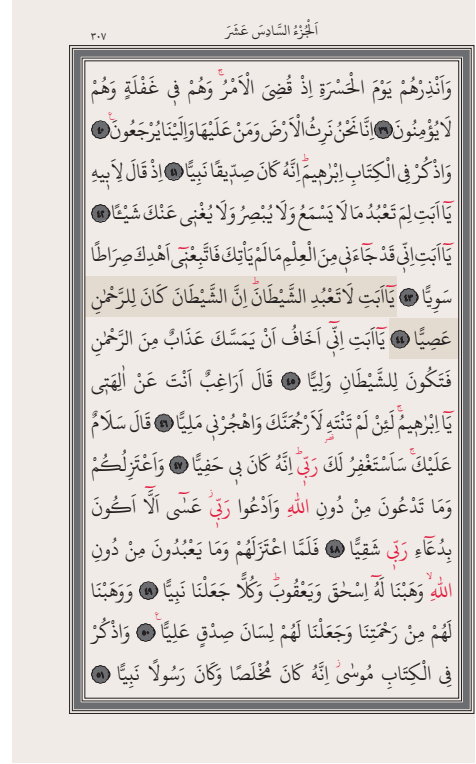 اَلْجُزْءُ السَّادِسَ عَشَرَ
٣٠٧
وَاَنْذِرْهُمْ يَوْمَ الْحَسْرَةِ اِذْ قُضِيَ الْاَمْرُۢ وَهُمْ فِي غَفْلَةٍ وَهُمْ
لَا يُؤْمِنُونَ ﴿٣٩﴾ اِنَّا نَحْنُ نَرِثُ الْاَرْضَ وَمَنْ عَلَيْهَا وَاِلَيْنَا يُرْجَعُونَ۟ ﴿٤٠﴾
وَاذْكُرْ فِي الْكِتَابِ اِبْرٰهِيمَۜ اِنَّهُ كَانَ صِدِّيقًا نَبِيًّا ﴿٤١﴾ اِذْ قَالَ لِاَبِيهِ
يَٓا اَبَتِ لِمَ تَعْبُدُ مَا لَا يَسْمَعُ وَلَا يُبْصِرُ وَلَا يُغْنِي عَنْكَ شَيْـًٔا ﴿٤٢﴾
يَٓا اَبَتِ اِنِّي قَدْ جَٓاءَنِي مِنَ الْعِلْمِ مَا لَمْ يَأْتِكَ فَاتَّبِعْنِٓي اَهْدِكَ صِرَاطًا
سَوِيًّا ﴿٤٣﴾ يَٓا اَبَتِ لَا تَعْبُدِ الشَّيْطَانَۜ اِنَّ الشَّيْطَانَ كَانَ لِلرَّحْمٰنِ
عَصِيًّا ﴿٤٤﴾ يَٓا اَبَتِ اِنِّٓي اَخَافُ اَنْ يَمَسَّكَ عَذَابٌ مِنَ الرَّحْمٰنِ
فَتَكُونَ لِلشَّيْطَانِ وَلِيًّا ﴿٤٥﴾ قَالَ اَرَاغِبٌ اَنْتَ عَنْ اٰلِهَتِي
يَٓا اِبْرٰهِيمُۚ لَئِنْ لَمْ تَنْتَهِ لَاَرْجُمَنَّكَ وَاهْجُرْنِي مَلِيًّا ﴿٤٦﴾ قَالَ سَلَامٌ
عَلَيْكَۚ سَاَسْتَغْفِرُ لَكَ رَبِّيۜ اِنَّهُ كَانَ بِي حَفِيًّا ﴿٤٧﴾ وَاَعْتَزِلُكُمْ
وَمَا تَدْعُونَ مِنْ دُونِ اللّٰهِ وَاَدْعُوا رَبِّيۘ عَسٰٓى اَلَّٓا اَكُونَ
بِدُعَٓاءِ رَبِّي شَقِيًّا ﴿٤٨﴾ فَلَمَّا اعْتَزَلَهُمْ وَمَا يَعْبُدُونَ مِنْ دُونِ
اللّٰهِۙ وَهَبْنَا لَهُٓ اِسْحٰقَ وَيَعْقُوبَۜ وَكُلًّا جَعَلْنَا نَبِيًّا ﴿٤٩﴾ وَوَهَبْنَا
لَهُمْ مِنْ رَحْمَتِنَا وَجَعَلْنَا لَهُمْ لِسَانَ صِدْقٍ عَلِيًّا۟ ﴿٥٠﴾ وَاذْكُرْ
فِي الْكِتَابِ مُوسٰىۘ اِنَّهُ كَانَ مُخْلَصًا وَكَانَ رَسُولًا نَبِيًّا ﴿٥١﴾